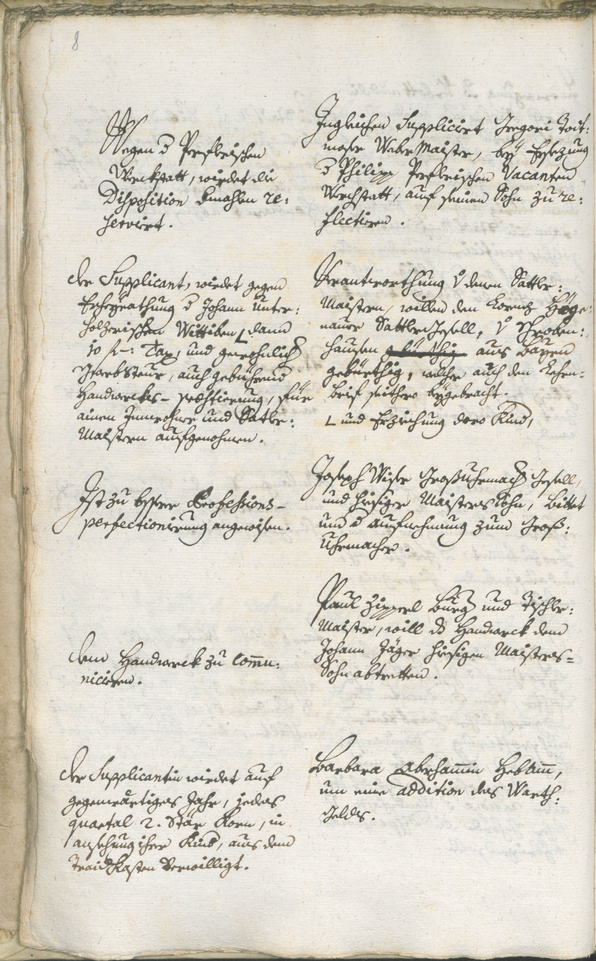 8
Wegen d Preslerischen
Werkstatt, wiedet die
Disposition Emahlen re:
servirt.
Ingleichen Supplicirt Gregori
moser Weber Maister, bey Ersezung
d Philipp Preslerischen Vacanten
Werchstatt, auf seinen Sohn zu re:
flectiren.
der Supplicant, wiedet gegen
Erheyrathung d Johann Unter:
holzerischen Wittiben, L dann
10 f: Tax, und gewohnlich
Steur, auch gebührend
Handwercks- für
einen Innwohner und Satle:
Maistern aufgenohmen.
Verantworthung V denen Sattle:
Maistern, willen den Lorenz
naur Sattler Gesell, V Schroben:
hausen aus Bayrn
gebürthig, welche auch den Lehrn:
brief beygebracht.
L und Erziehung dero Kind,
Ist zu besserer Professions-
perfectionirung angewisen.
Joseph Wiser Großuhrmach Gesell,
und hiesiger Maisters Sohn, bittet
umb d Aufnehmung zum Groß:
Uhrmacher.
dem Handwerck zu Commu:
niciren.
Paul Zipperl Burg und Tischle:
Maister, will ds Handwerck dem
Johann Jäger hiesigen Maisters=
Sohn abtretten.
der Supplicantin wiedet auf
gegenwärtiges Jahr, jedes
quartal 2. Stär Korn, in
ansehung ihrer Kind, aus dem
Traidkasten verwilligt.
Barbara Abrahamin Hebam,
um eine addition des Warth:
geldes.